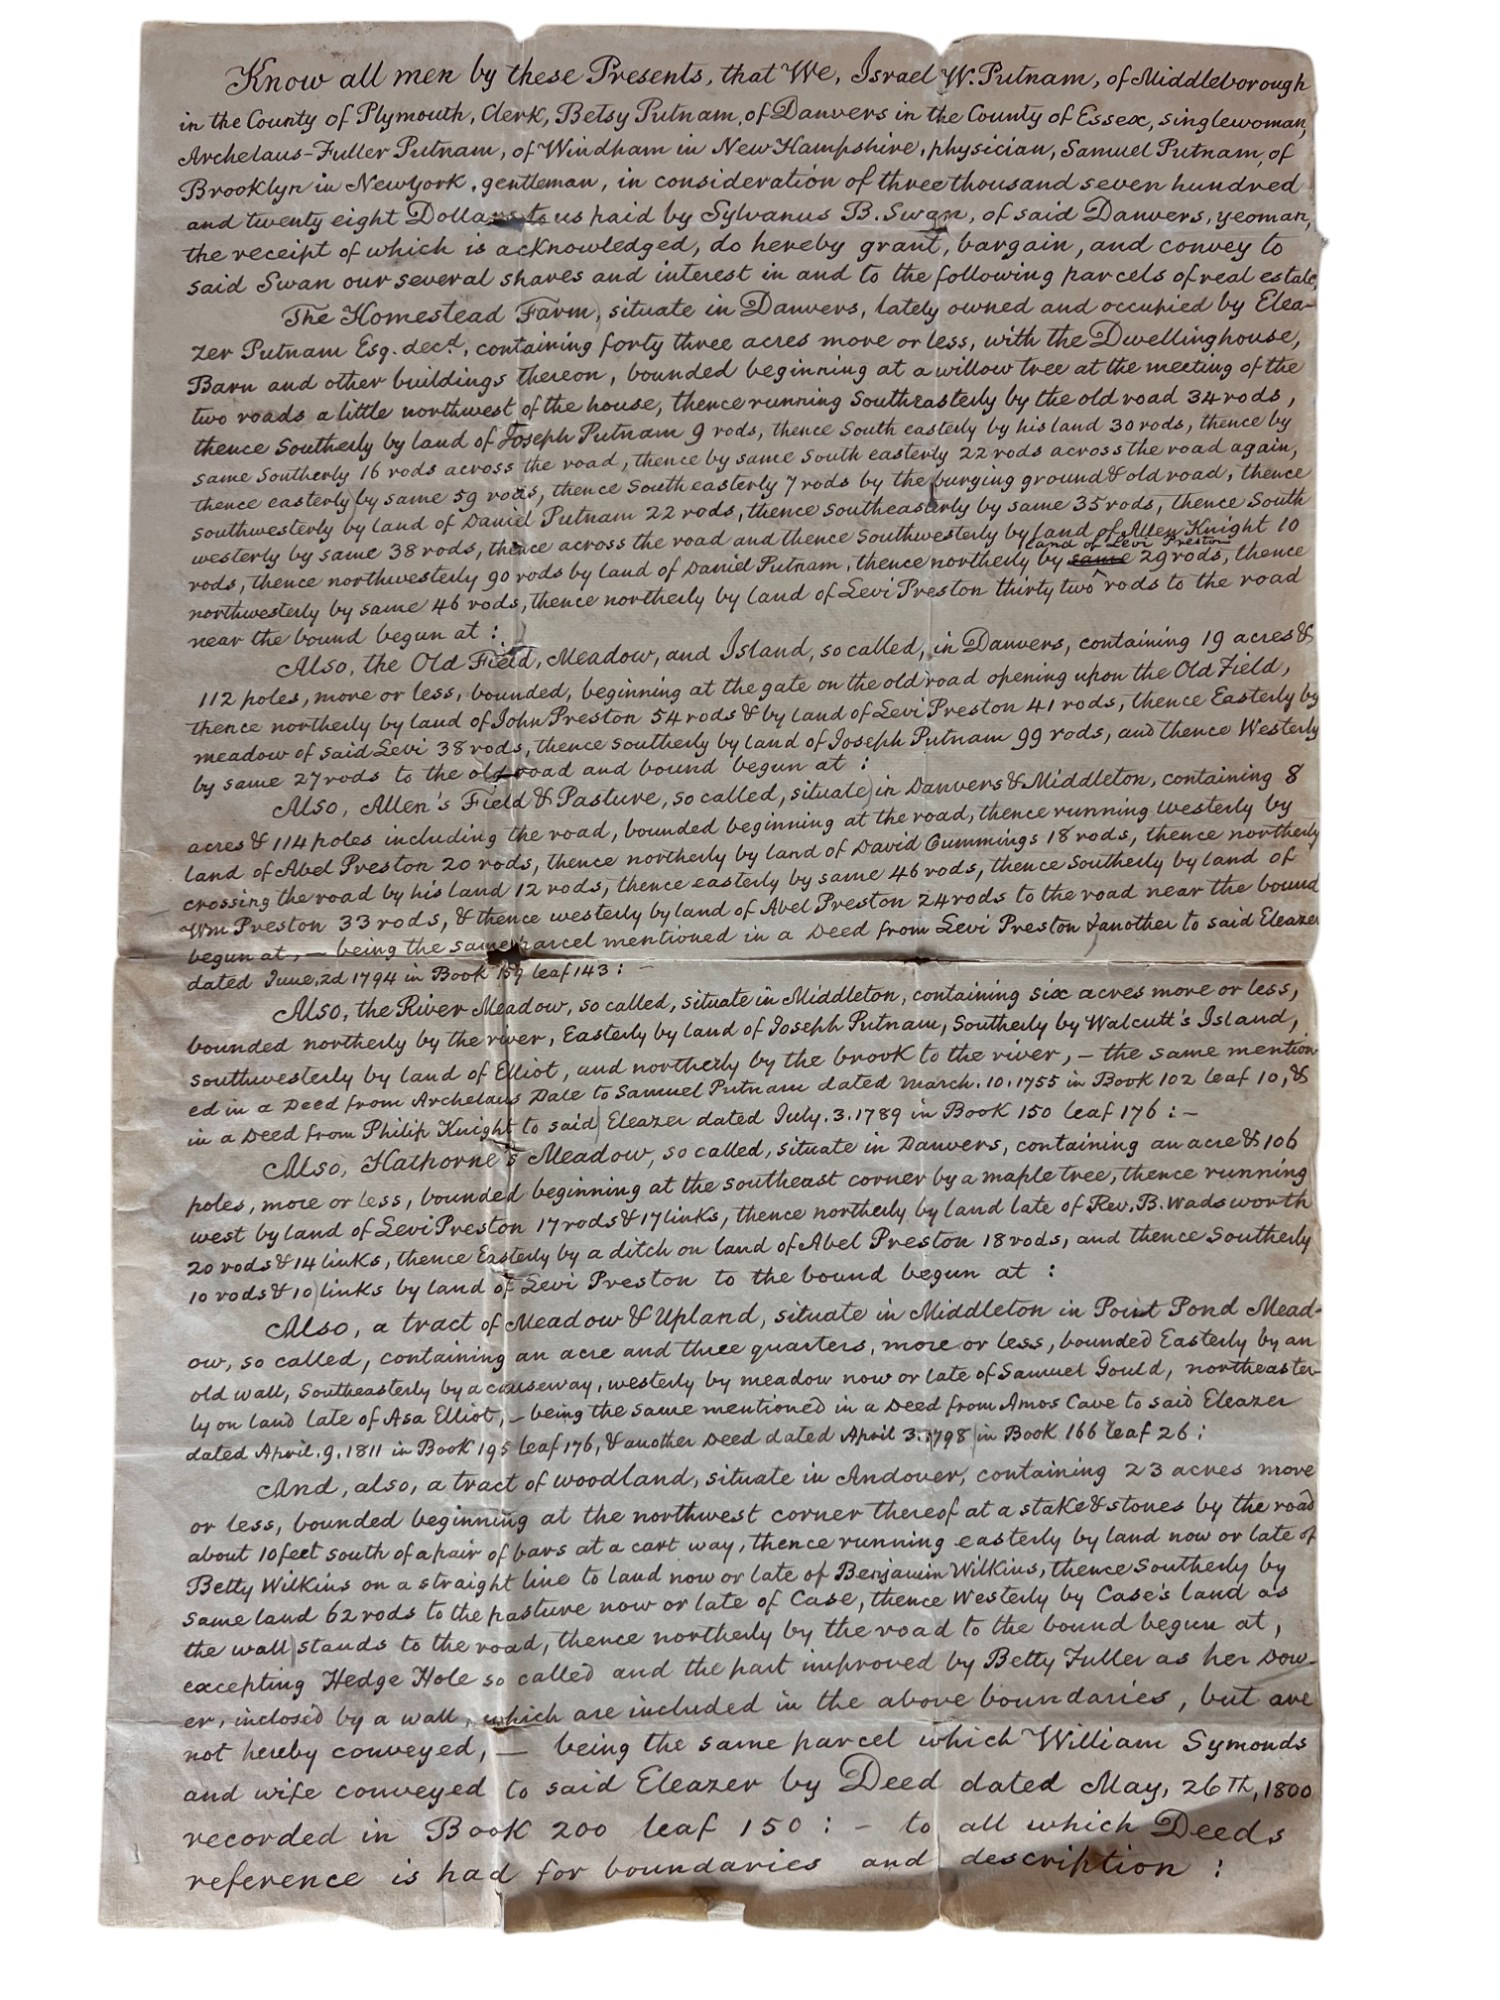 Know all men by these Presents, that We, Israel W. Putnam, of Middleborough
in the County of Plymouth, Clerk, Betsy Putnam, of Danvers in the County of Essex, singlewoman,
Archelaus-Fuller Putnam, of Windham in New Hampshire, physician, Samuel Putnam, of
Brooklyn in NewYork, gentleman, in consideration of three thousand seven hundred
and twenty eight Dollars to us paid by Sylvanus B. Swan, of said Danvers, yeoman,
the receipt of which is acknowledged, do hereby grant, bargain, and convey to
said Swan our several shares and interest in and to the following parcels of real estate,
The Homestead Farm, situate in Danvers, lately owned and occupied by Elea-
zer Putnam Esq. decd., containing forty three acres more or less, with the Dwellinghouse,
Barn and other buildings thereon, bounded beginning at a willow tree at the meeting of the
two roads a little northwest of the house, thence running Southeasterly by the old road 34 rods,
thence Southerly by land of Joseph Putnam 9 rods, thence South easterly by his land 30 rods, thence by
same Southerly 16 rods across the road, thence by same South easterly 22 rods across the road again,
thence easterly by same 59 rods, thence South easterly 7 rods by the burying ground & old road, thence
Southwesterly by land of Daniel Putnam 22 rods, thence Southeasterly by same 35 rods, thence South
westerly by same 38 rods, thence across the road and thence Southwesterly by land of Allen Knight 10
land of Levi Preston
rods, thence northwesterly 90 rods by land of Daniel Putnam, thence northerly by same 29 rods, thence
northwesterly by same 46 rods, thence northerly by land of Levi Preston thirty two rods to the road
near the bound begun at :
Also, the Old Field, Meadow, and Island, so called, in Danvers, containing 19 acres &
112 poles, more or less, bounded, beginning at the gate on the old road opening upon the Old Field,
thence northerly by land of John Preston 54 rods & by land of Levi Preston 41 rods, thence Easterly by
meadow of said Levi 38 rods, thence Southerly by land of Joseph Putnam 99 rods, and thence Westerly
by same 27 rods to the old road and bound begun at :
Also, Allen's Field & Pasture, so called, situate in Danvers & Middleton, containing 8
acres & 114 poles including the road, bounded beginning at the road, thence running westerly by
land of Abel Preston 20 rods, thence northerly by land of David Cummings 18 rods, thence northerly
crossing the road by his land 12 rods, thence easterly by same 46 rods, thence Southerly by land of
Wm Preston 33 rods, & thence westerly by land of Abel Preston 24 rods to the road near the bound
begun at, — being the same parcel mentioned in a Deed from Levi Preston & another to said Eleazer
dated June, 2d 1794 in Book 159 leaf 143 : —
Also, the River Meadow, so called, situate in Middleton, containing six acres more or less,
bounded northerly by the river, Easterly by land of Joseph Putnam, Southerly by Walcutt's Island,
southwesterly by land of Elliot, and northerly by the brook to the river, — the same mention
ed in a Deed from Archelaus Dale to Samuel Putnam dated March. 10. 1755 in Book 102 leaf 10, &
in a Deed from Philip Knight to said Eleazer dated July. 3. 1789 in Book 150 leaf 176 : —
Also, Hathorne's Meadow, so called, situate in Danvers, containing an acre & 106
poles, more or less, bounded beginning at the southeast corner by a maple tree, thence running
west by land of Levi Preston 17 rods & 17 links, thence northerly by land late of Rev. B. Wadsworth
20 rods & 14 links, thence Easterly by a ditch on land of Abel Preston 18 rods, and thence Southerly
10 rods & 10 links by land of Levi Preston to the bound begun at :
Also, a tract of Meadow & Upland, situate in Middleton in Point Pond Mead-
ow, so called, containing an acre and three quarters, more or less, bounded Easterly by an
old wall, Southeasterly by a causeway, westerly by meadow now or late of Samuel Gould, northeaster-
ly on land late of Asa Elliot, — being the same mentioned in a Deed from Amos Cave to said Eleazer
dated April. 9. 1811 in Book 195 leaf 176, & another Deed dated April 3. 1798 in Book 166 leaf 26 :
And, also, a tract of woodland, situate in Andover, containing 23 acres more
or less, bounded beginning at the northwest corner thereof at a stake & stones by the road
about 10 feet south of a pair of bars at a cart way, thence running easterly by land now or late of
Betty Wilkins on a straight line to land now or late of Benjamin Wilkins, thence Southerly by
same land 62 rods to the pasture now or late of Case, thence Westerly by Case's land as
the wall stands to the road, thence northerly by the road to the bound begun at,
excepting Hedge Hole so called and the part improved by Betty Fuller as her Dow-
er, inclosed by a wall, which are included in the above boundaries, but are
not hereby conveyed, — being the same parcel which William Symonds
and wife conveyed to said Eleazer by Deed dated May, 26th, 1800
recorded in Book 200 leaf 150 : — to all which Deeds
reference is had for boundaries and description :